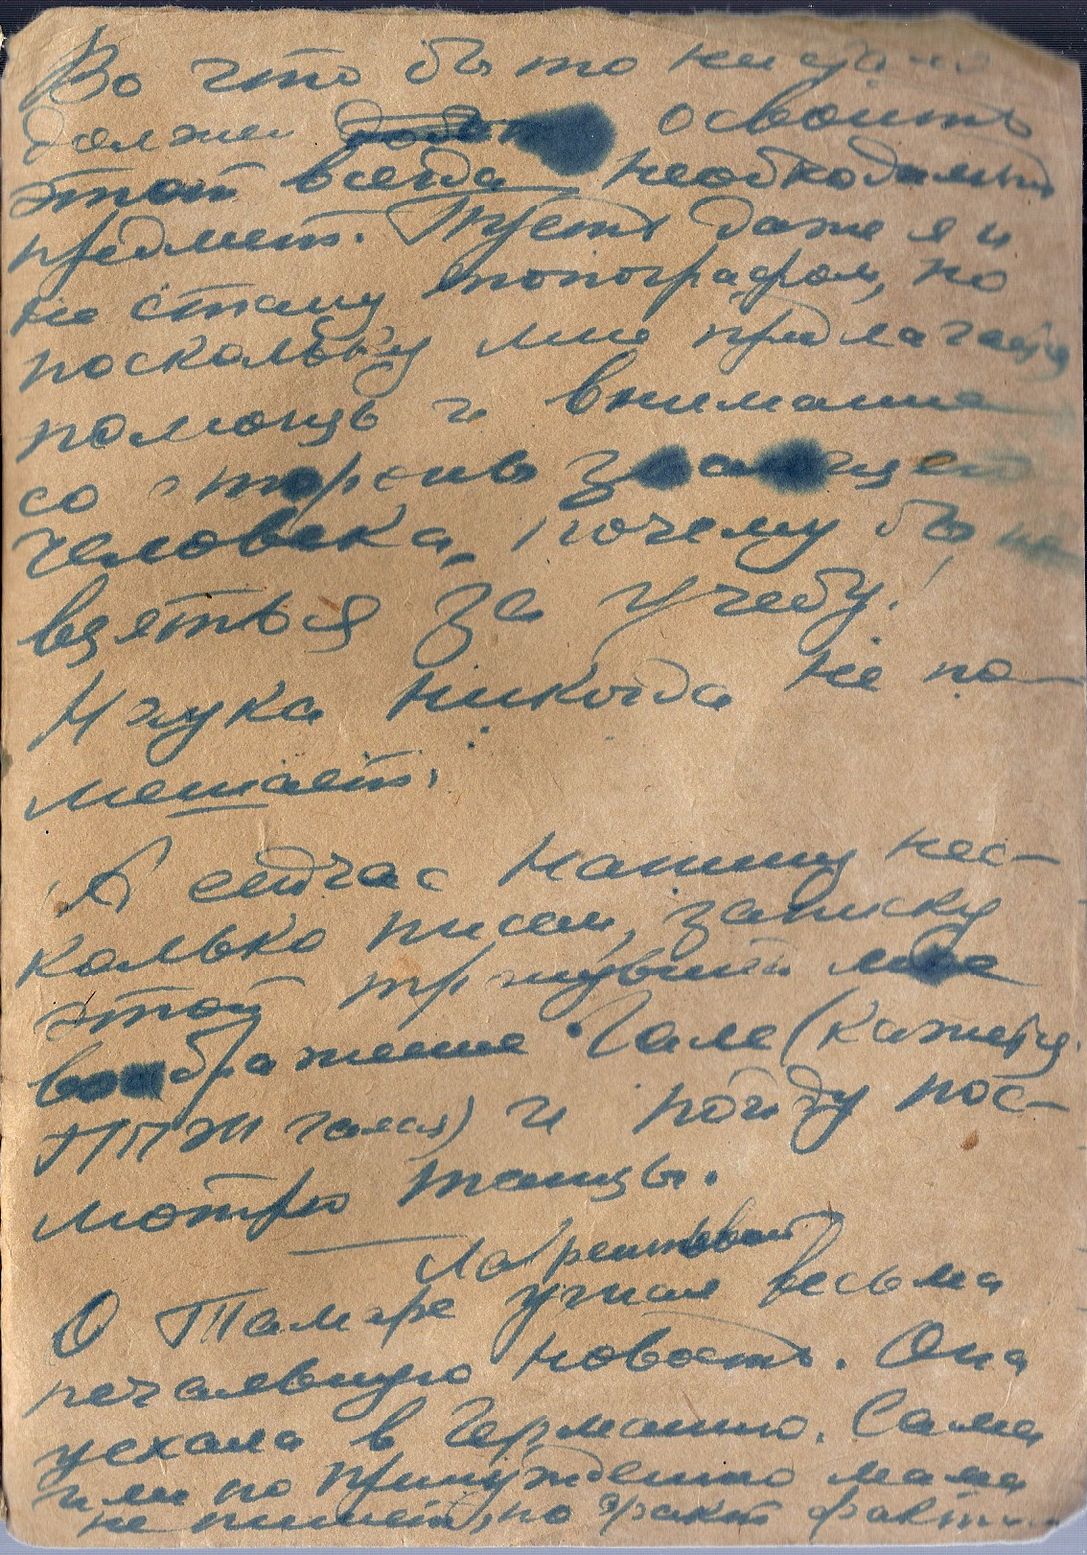 Во что бы то ни стало
должен освоить
этот всегда необходимый
предмет. Пусть даже я и
не стану топографом, но
поскольку мне предлагается
помощь и внимание
со стороны знающего
человека, почему бы не
взяться за учебу!
Наука никогда не по-
мешает.
А сейчас напишу нес-
колько писем, записку
этой тронувшей мое
воображение Гале (кажется
ППЖ ) и пойду пос-
мотрю танцы.
Лаврентьевой
О Тамаре узнал весьма
печальную новость. Она
уехала в Германию. Сама
или по принуждению мама
не пишет, но факт фактом